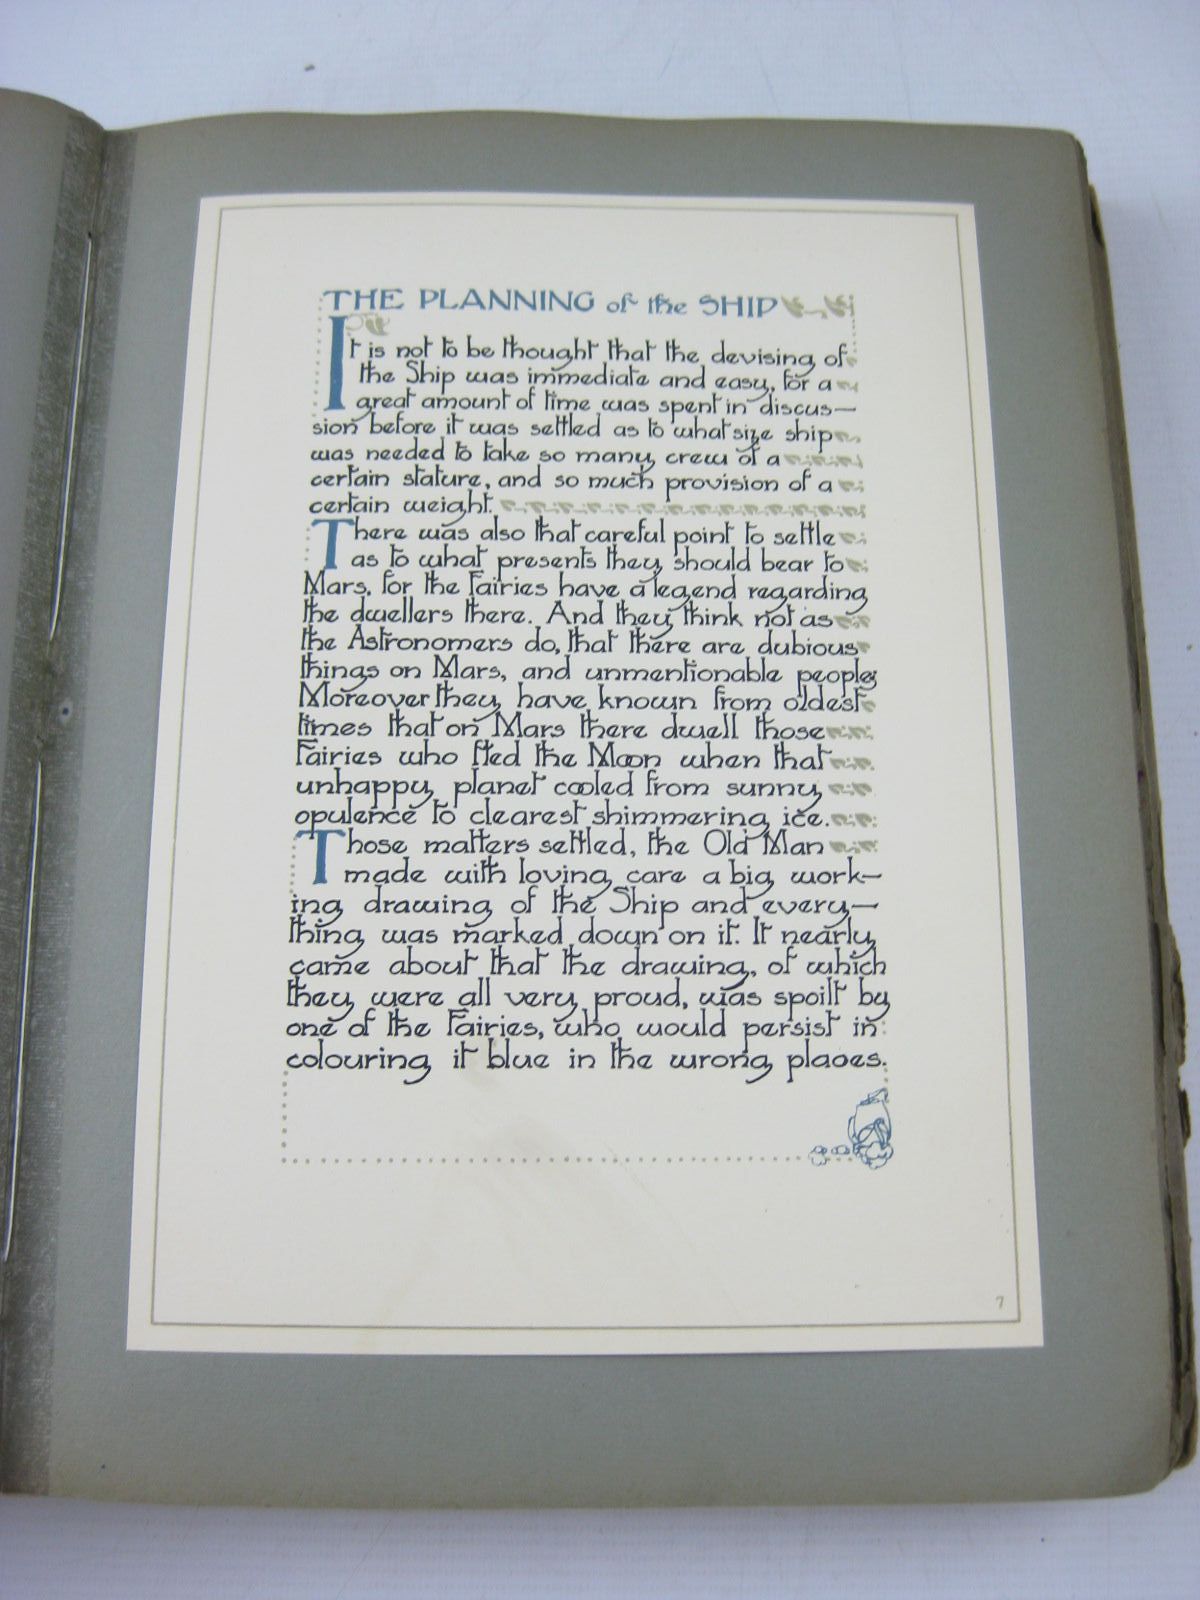 THE PLANNING of the SHIP
It is not to be thought that the devising of
the Ship was immediate and easy, for a
great amount of time was spent in discus—
sion before it was settled as to what size ship
was needed to take so many crew of a
certain stature, and so much provision of a
certain weight.
There was also that careful point to settle
as to what presents they should bear to
Mars, for the Fairies have a legend regarding
the dwellers there. And they think not as
the Astronomers do, that there are dubious
things on Mars, and unmentionable peoples
Moreover they have known from oldest
times that on Mars there dwell those
Fairies who fled the Moon when that
unhappy planet cooled from sunny
opulence to clearest shimmering ice.
Those matters settled, the Old Man
made with loving care a big work—
ing drawing of the Ship and every—
thing was marked down on it. It nearly
came about that the drawing, of which
they were all very proud, was spoilt by
one of the Fairies, who would persist in
colouring it blue in the wrong places.
7